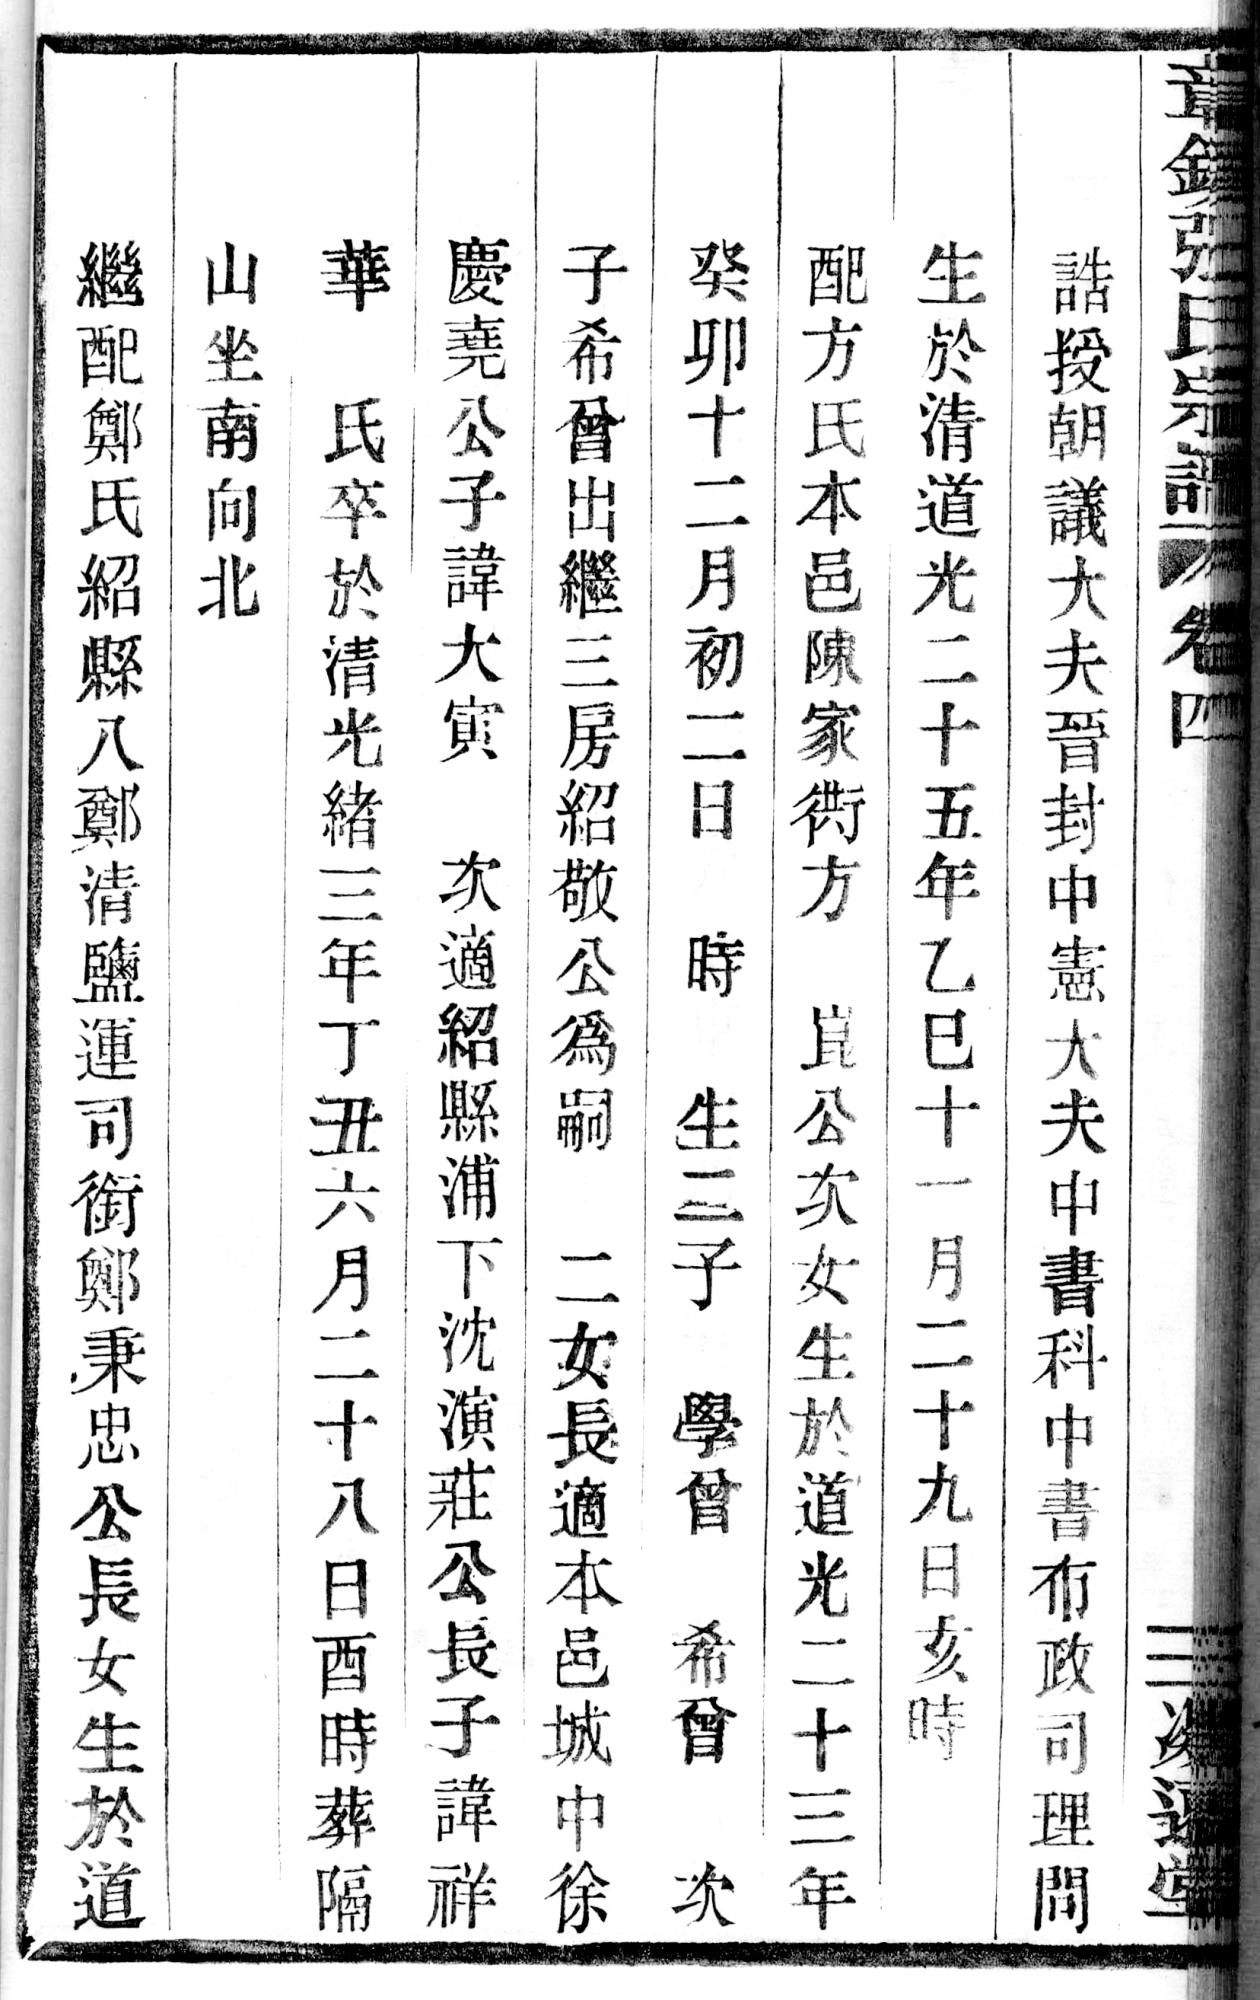 章鎮張氏宗譜 卷四 三 
誥授朝議大夫晉封中憲大夫中書科中書布政司理問
生於清道光二十五年乙巳十一月二十九日亥時
配方氏本邑陳家衖方 崑公次女生於道光二十三年
癸卯十二月初二日 時 生二子 學曾 希曾 次
子希曾出繼三房紹敬公爲嗣 二女長適本邑城中徐
慶堯公子諱大寅 次適紹縣浦下沈演莊公長子諱祥
華 氏卒於清光緒三年丁丑六月二十八日酉時葬隔
山坐南向北
繼配鄭氏紹縣八鄭清鹽運司銜鄭秉忠公長女生於道